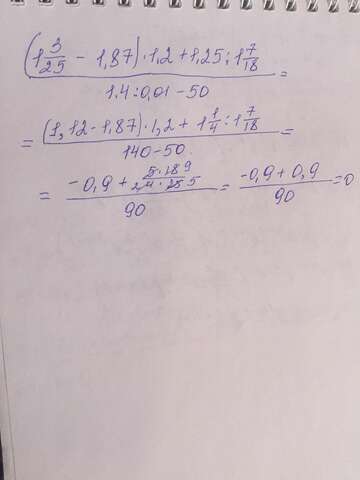 (1 3/25 - 1,87) · 1,2 + 1,25 : 1 7/18
1.4 : 0,01 - 50 =
= (1,12 - 1,87) · 1,2 + 1 1/4 : 1 7/18
140 - 50. =
= - 0,9 + 5 · 18 9 / 2 4 · 25 5
90
= -0,9 + 0,9
90 = 0